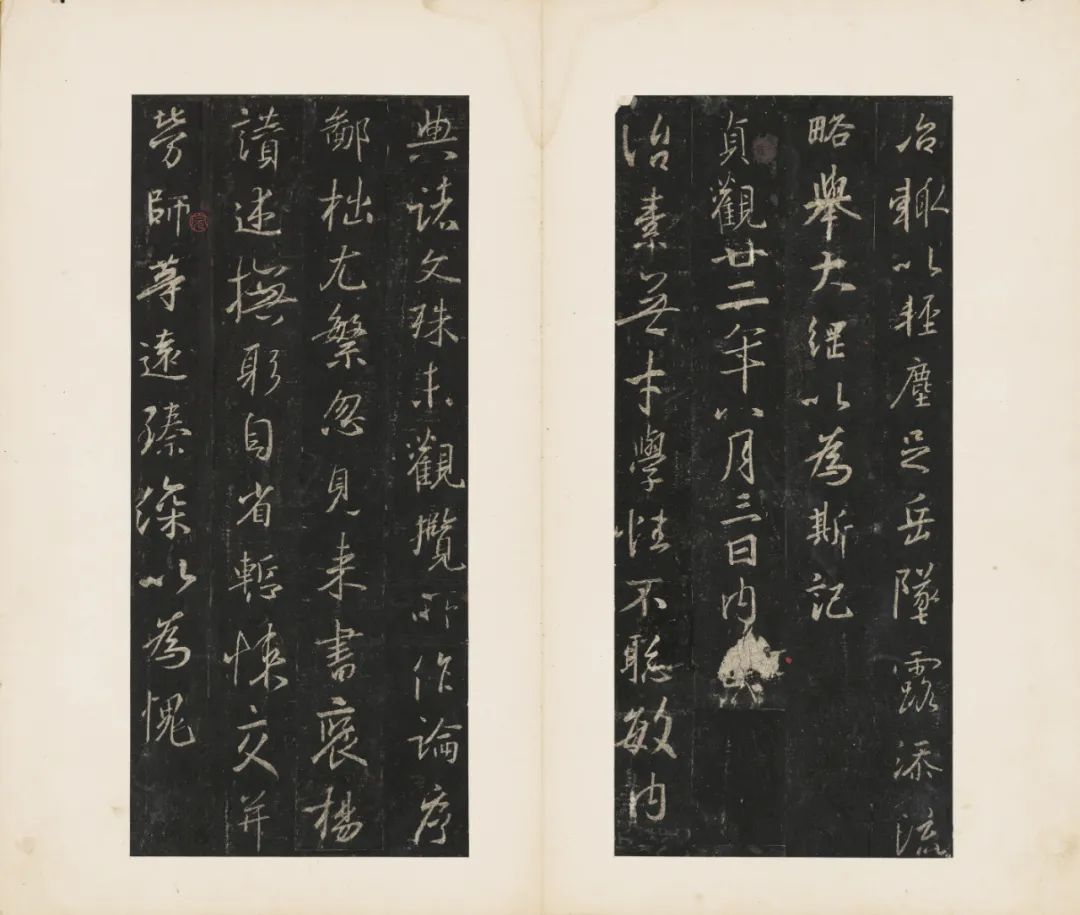 冶輒以輕塵足岳墜露添流
略舉大綱以為斯記
貞觀廿二年八月三日內
治素無才學性不聰敏內
典諸文殊未觀攬所作論序
鄙拙尤繁忽見來書褒揚
讚述撫躬自省慙悚交并
勞師等遠臻深以為愧